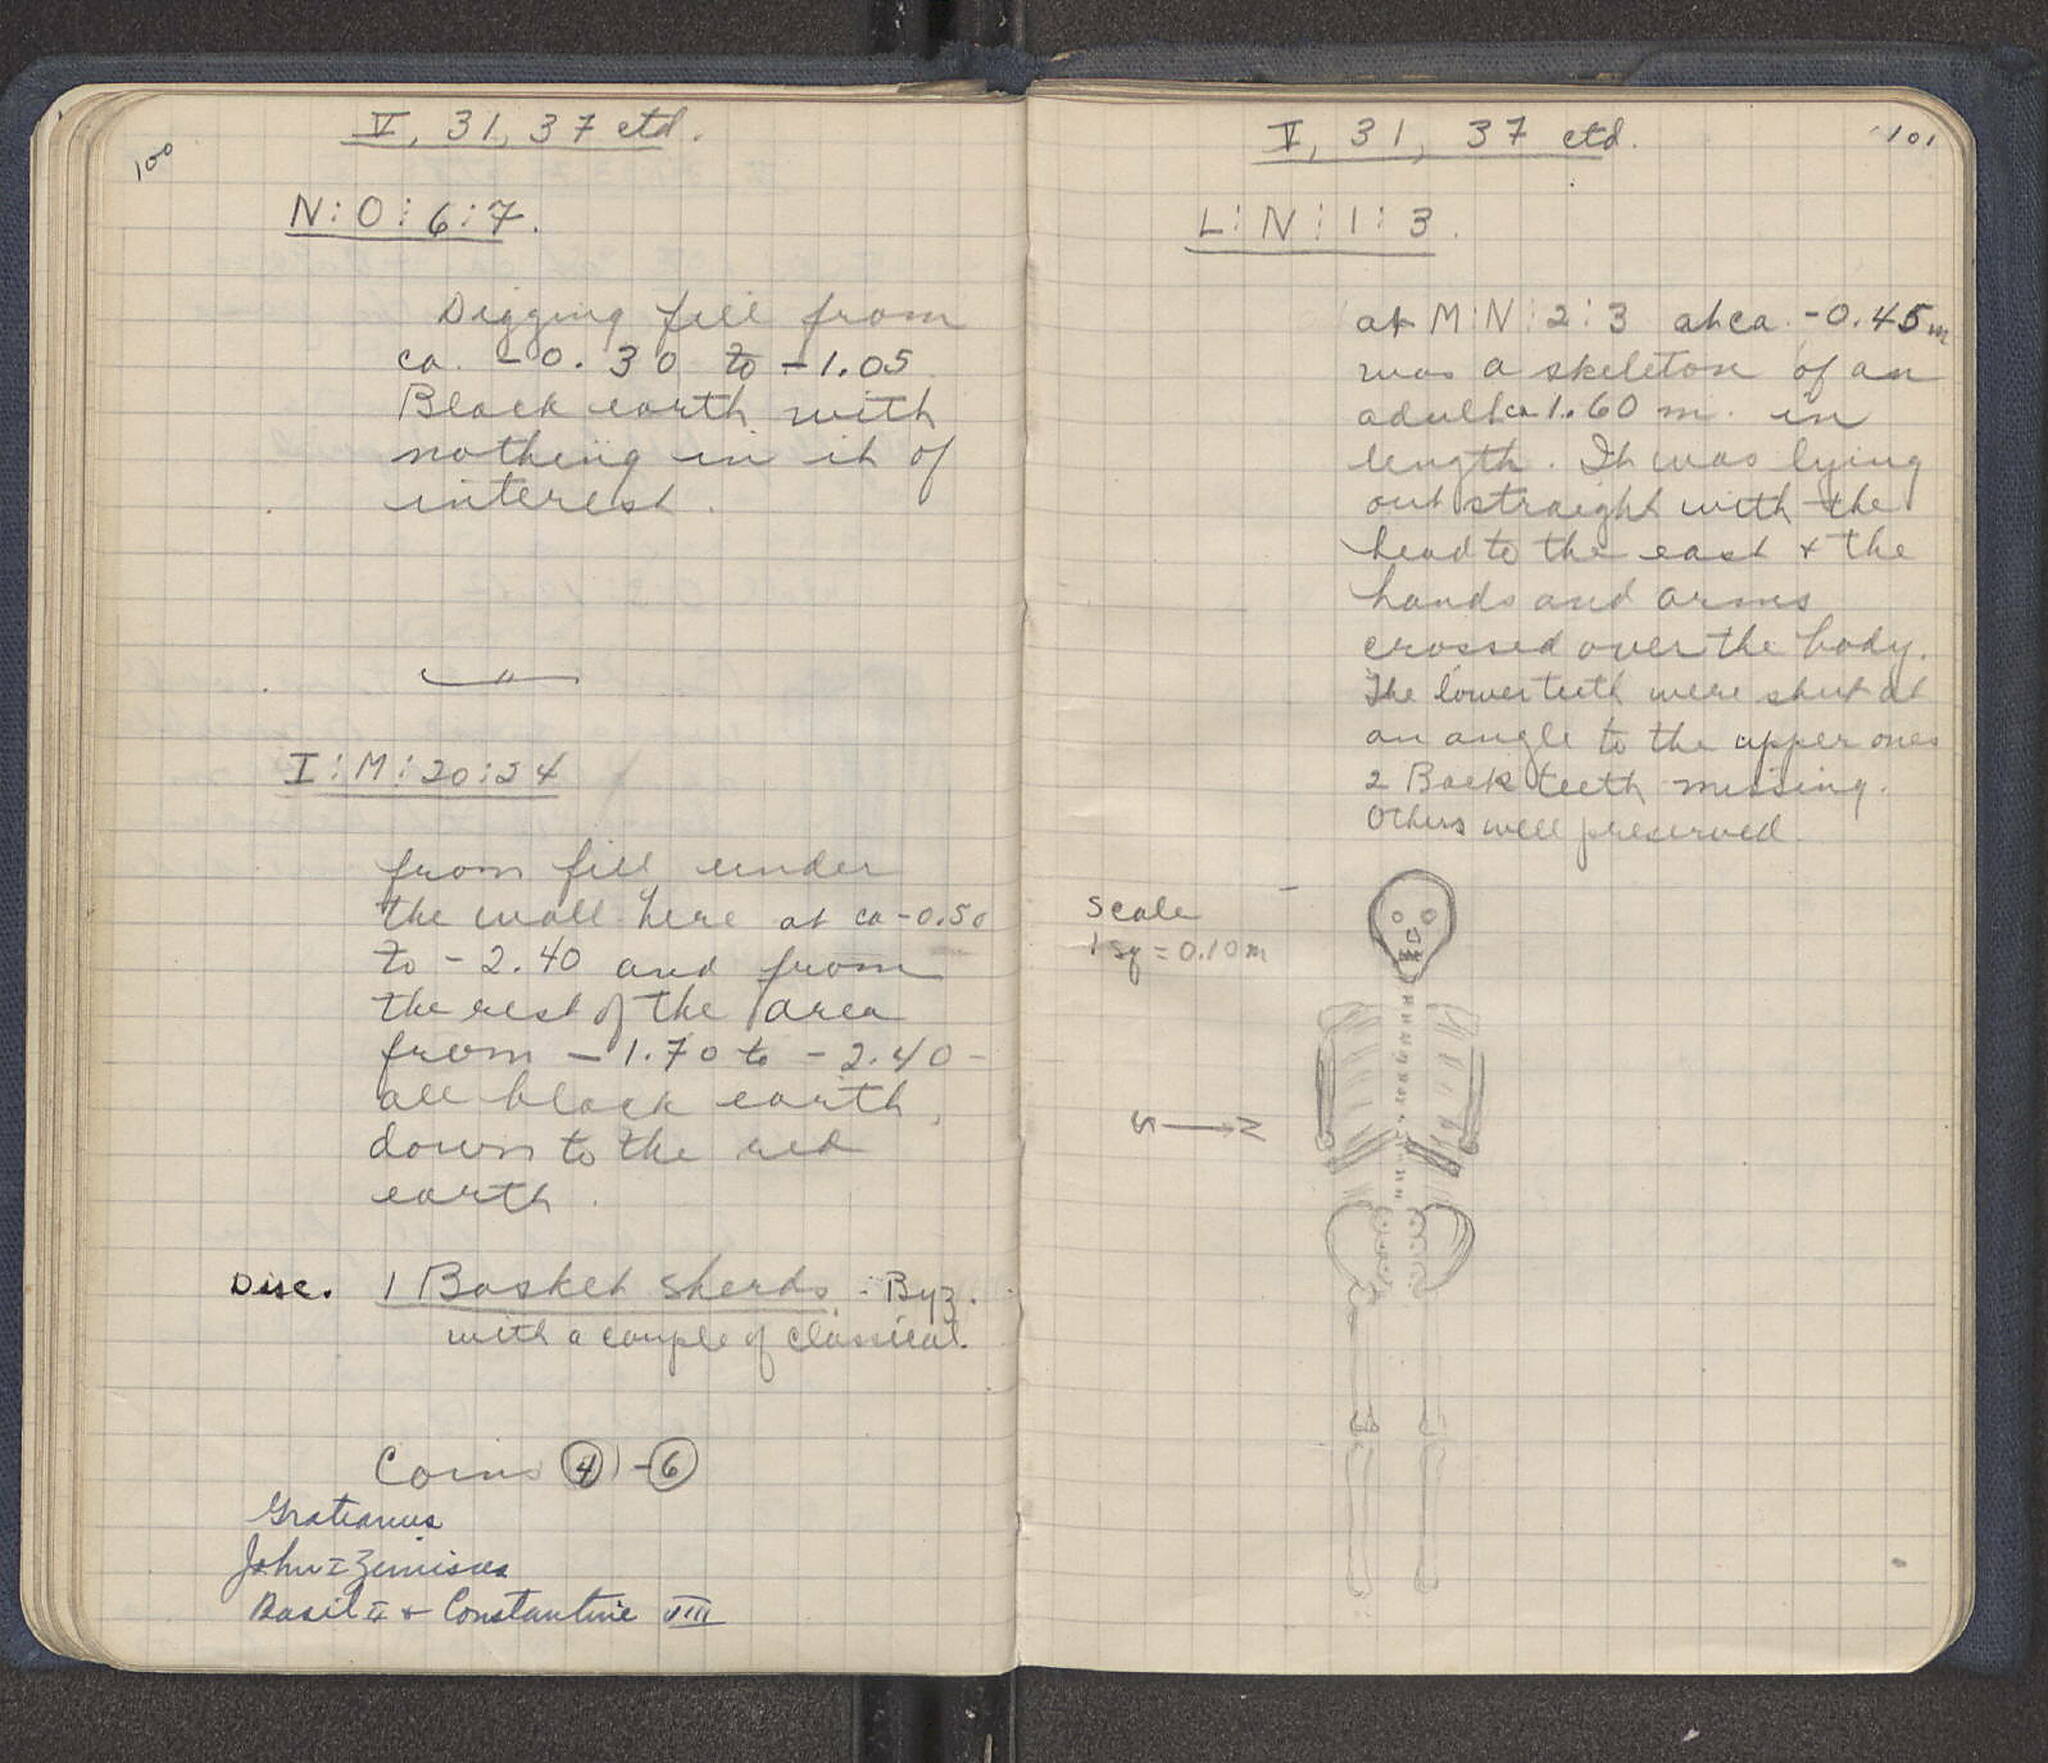 100
V, 31, 37 ctd.
N:O:6:7.
Digging fill from
ca. -0.30 to -1.05
Black earth with
nothing in it of
interest.
I:M:20:24
from fill under
the wall here at ca -0.50
to -2.40 and from
the rest of the area
from -1.70 to -2.40 -
all black earth,
down to the red
earth.
Disc. 1 Basket sherds. - Byz.
with a couple of classical.
Coins 4 - 6
Gratianus
John I Zimisces
Basil II + Constantine VIII
V, 31, 37 ctd. 101
L:N:1:3.
at M:N:2:3 at ca. -0.45m
was a skeleton of an
adult ca 1.60 m. in
length. It was lying
out straight with the
head to the east + the
hands and arms
crossed over the body.
The lower teeth were shut at
an angle to the upper ones
2 Back teeth missing.
Others well preserved.
Scale
1 sq = 0.10m
S N